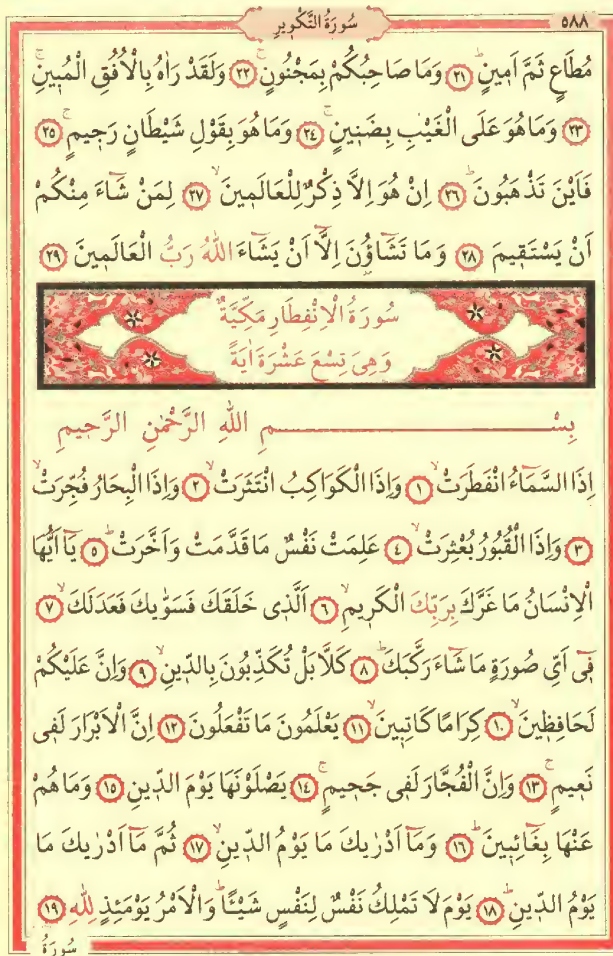 سُورَةُ التَّكْوِيرِ
٥٨٨
مُطَاعٍ ثَمَّ اَمِينٍۜ ﴿٢١﴾ وَمَا صَاحِبُكُمْ بِمَجْنُونٍۚ ﴿٢٢﴾ وَلَقَدْ رَاٰهُ بِالْاُفُقِ الْمُبِينِۚ
﴿٢٣﴾ وَمَا هُوَ عَلَى الْغَيْبِ بِضَنِينٍۚ ﴿٢٤﴾ وَمَا هُوَ بِقَوْلِ شَيْطَانٍ رَجِيمٍۚ ﴿٢٥﴾
فَاَيْنَ تَذْهَبُونَۜ ﴿٢٦﴾ اِنْ هُوَ اِلَّا ذِكْرٌ لِلْعَالَمِينَۙ ﴿٢٧﴾ لِمَنْ شَٓاءَ مِنْكُمْ
اَنْ يَسْتَقِيمَۜ ﴿٢٨﴾ وَمَا تَشَٓاؤُ۫نَ اِلَّٓا اَنْ يَشَٓاءَ اللّٰهُ رَبُّ الْعَالَمِينَ ﴿٢٩﴾
سُورَةُ الْاِنْفِطَارِ مَكِّيَّةٌ
وَهِيَ تِسْعَ عَشْرَةَ اٰيَةً
بِسْمِ اللّٰهِ الرَّحْمٰنِ الرَّحِيمِ
اِذَا السَّمَٓاءُ انْفَطَرَتْۙ ﴿١﴾ وَاِذَا الْكَوَاكِبُ انْتَثَرَتْۙ ﴿٢﴾ وَاِذَا الْبِحَارُ فُجِّرَتْۙ
﴿٣﴾ وَاِذَا الْقُبُورُ بُعْثِرَتْۙ ﴿٤﴾ عَلِمَتْ نَفْسٌ مَا قَدَّمَتْ وَاَخَّرَتْۜ ﴿٥﴾ يَٓا اَيُّهَا
الْاِنْسَانُ مَا غَرَّكَ بِرَبِّكَ الْكَرِيمِۙ ﴿٦﴾ اَلَّذِي خَلَقَكَ فَسَوّٰيكَ فَعَدَلَكَۙ ﴿٧﴾
فِٓي اَيِّ صُورَةٍ مَا شَٓاءَ رَكَّبَكَۜ ﴿٨﴾ كَلَّا بَلْ تُكَذِّبُونَ بِالدِّينِۙ ﴿٩﴾ وَاِنَّ عَلَيْكُمْ
لَحَافِظِينَۙ ﴿١٠﴾ كِرَامًا كَاتِبِينَۙ ﴿١١﴾ يَعْلَمُونَ مَا تَفْعَلُونَ ﴿١٢﴾ اِنَّ الْاَبْرَارَ لَفِي
نَعِيمٍۚ ﴿١٣﴾ وَاِنَّ الْفُجَّارَ لَفِي جَحِيمٍۚ ﴿١٤﴾ يَصْلَوْنَهَا يَوْمَ الدِّينِ ﴿١٥﴾ وَمَا هُمْ
عَنْهَا بِغَٓائِبِينَۜ ﴿١٦﴾ وَمَٓا اَدْرٰيكَ مَا يَوْمُ الدِّينِۙ ﴿١٧﴾ ثُمَّ مَٓا اَدْرٰيكَ مَا
يَوْمُ الدِّينِۜ ﴿١٨﴾ يَوْمَ لَا تَمْلِكُ نَفْسٌ لِنَفْسٍ شَيْـًٔاۜ وَالْاَمْرُ يَوْمَئِذٍ لِلّٰهِ ﴿١٩﴾
سُورَةُ